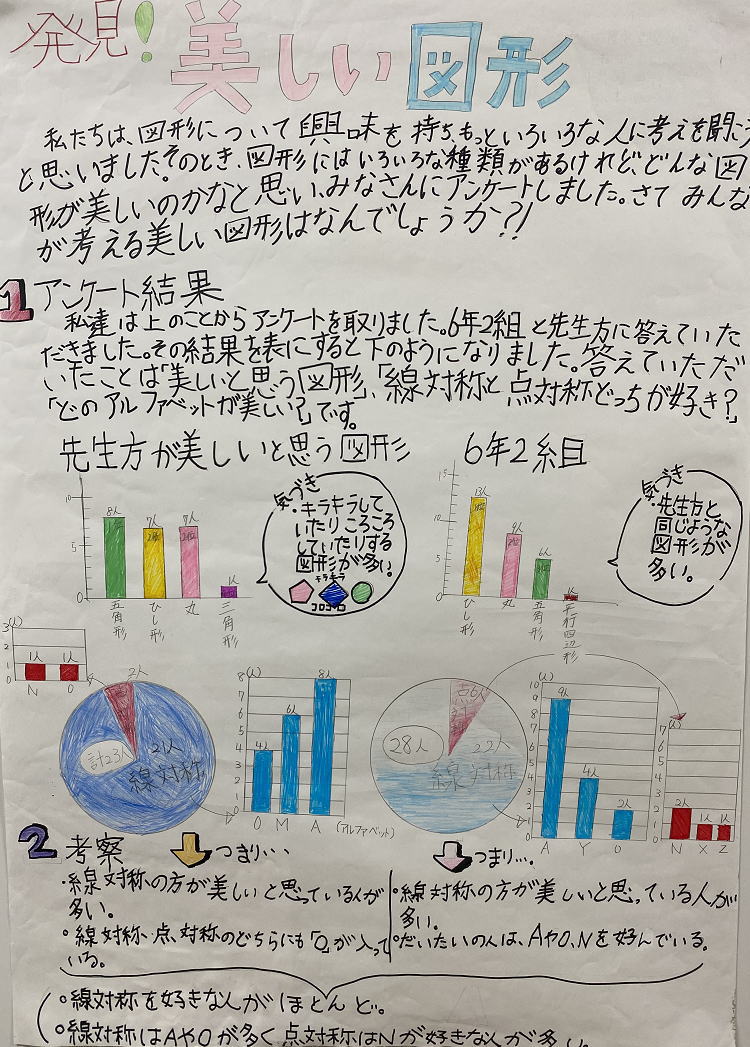 発見!美しい図形
私たちは、図形について興味を持ち、もっといろいろな人に考えを聞こう
と思いました。そのとき、図形にはいろいろな種類があるけれど、どんな図
形が美しいのかなと思い、みなさんにアンケートしました。さてみんな
が考える美しい図形はなんでしょうか?!
1 アンケート結果
私達は上のことからアンケートを取りました。6年2組と先生方に答えていた
だきました。その結果を表にすると下のようになりました。答えていただ
いたことは「美しいと思う図形」、「線対称と点対称どっちが好き?」
「どのアルファベットが美しい?」です。
先生方が美しいと思う図形
10
5
0
8人
7人
7人
1人
1位
2位
2位
五角形
ひし形
丸
三角形
気づき
・キラキラして
いたりころころ
していたりする
図形が多い。
キラキラ
コロコロ
6年2組
15
10
5
0
13人
9人
6人
1人
1位
2位
ひし形
丸
五角形
平行四辺形
気づき
・先生方と
同じような
図形が
多い。
(人)
3
2
1
0
1人
1人
N
O
2人
計23人
21人
線対称
(人)
8
7
6
5
4
3
2
1
0
4人
6人
8人
O
M
A
(アルファベット)
点対称
6人
28人
22人
線対称
(人)
10
9
8
7
6
5
4
3
2
1
0
9人
4人
2人
A
Y
O
(人)
7
6
5
4
3
2
1
0
2人
1人
1人
N
X
Z
2 考察
つまり…
・線対称の方が美しいと思っている人が
多い。
・線対称、点対称のどちらにも「O」が入って
いる。
つまり…。
・線対称の方が美しいと思っている人が
多い。
・だいたいの人は、AやO、Nを好んでいる。
・線対称を好きな人がほとんど。
・線対称はAやOが多く点対称はNが好きな人が多い。